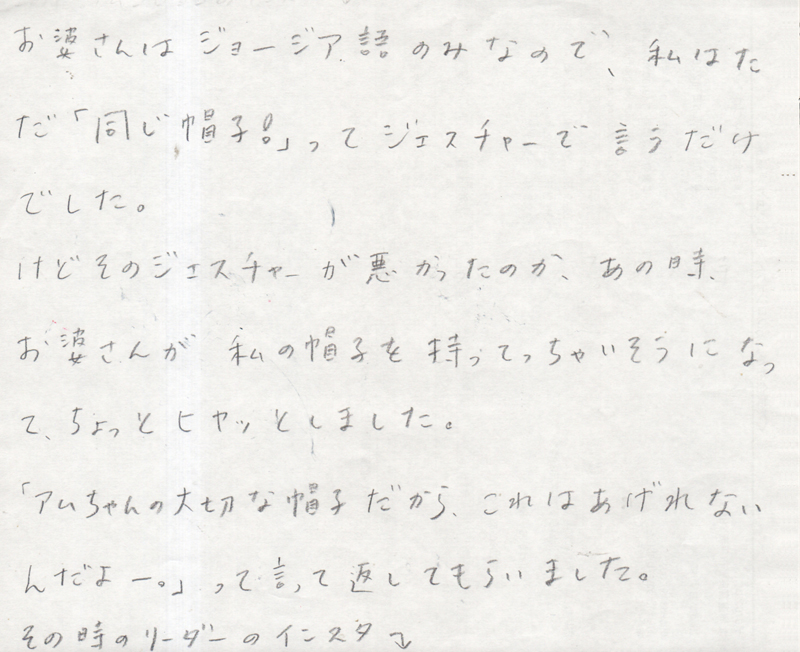 お婆さんはジョージア語のみなので、私はた
だ「同じ帽子!」ってジェスチャーで言うだけ
でした。
けどそのジェスチャーが悪かったのか、あの時、
お婆さんが私の帽子を持ってっちゃいそうになっ
て、ちょっとヒヤッとしました。
「アムちゃんの大切な帽子だから、これはあげれない
んだよー。」って言って返してもらいました。
その時のリーダーのインスタ↓